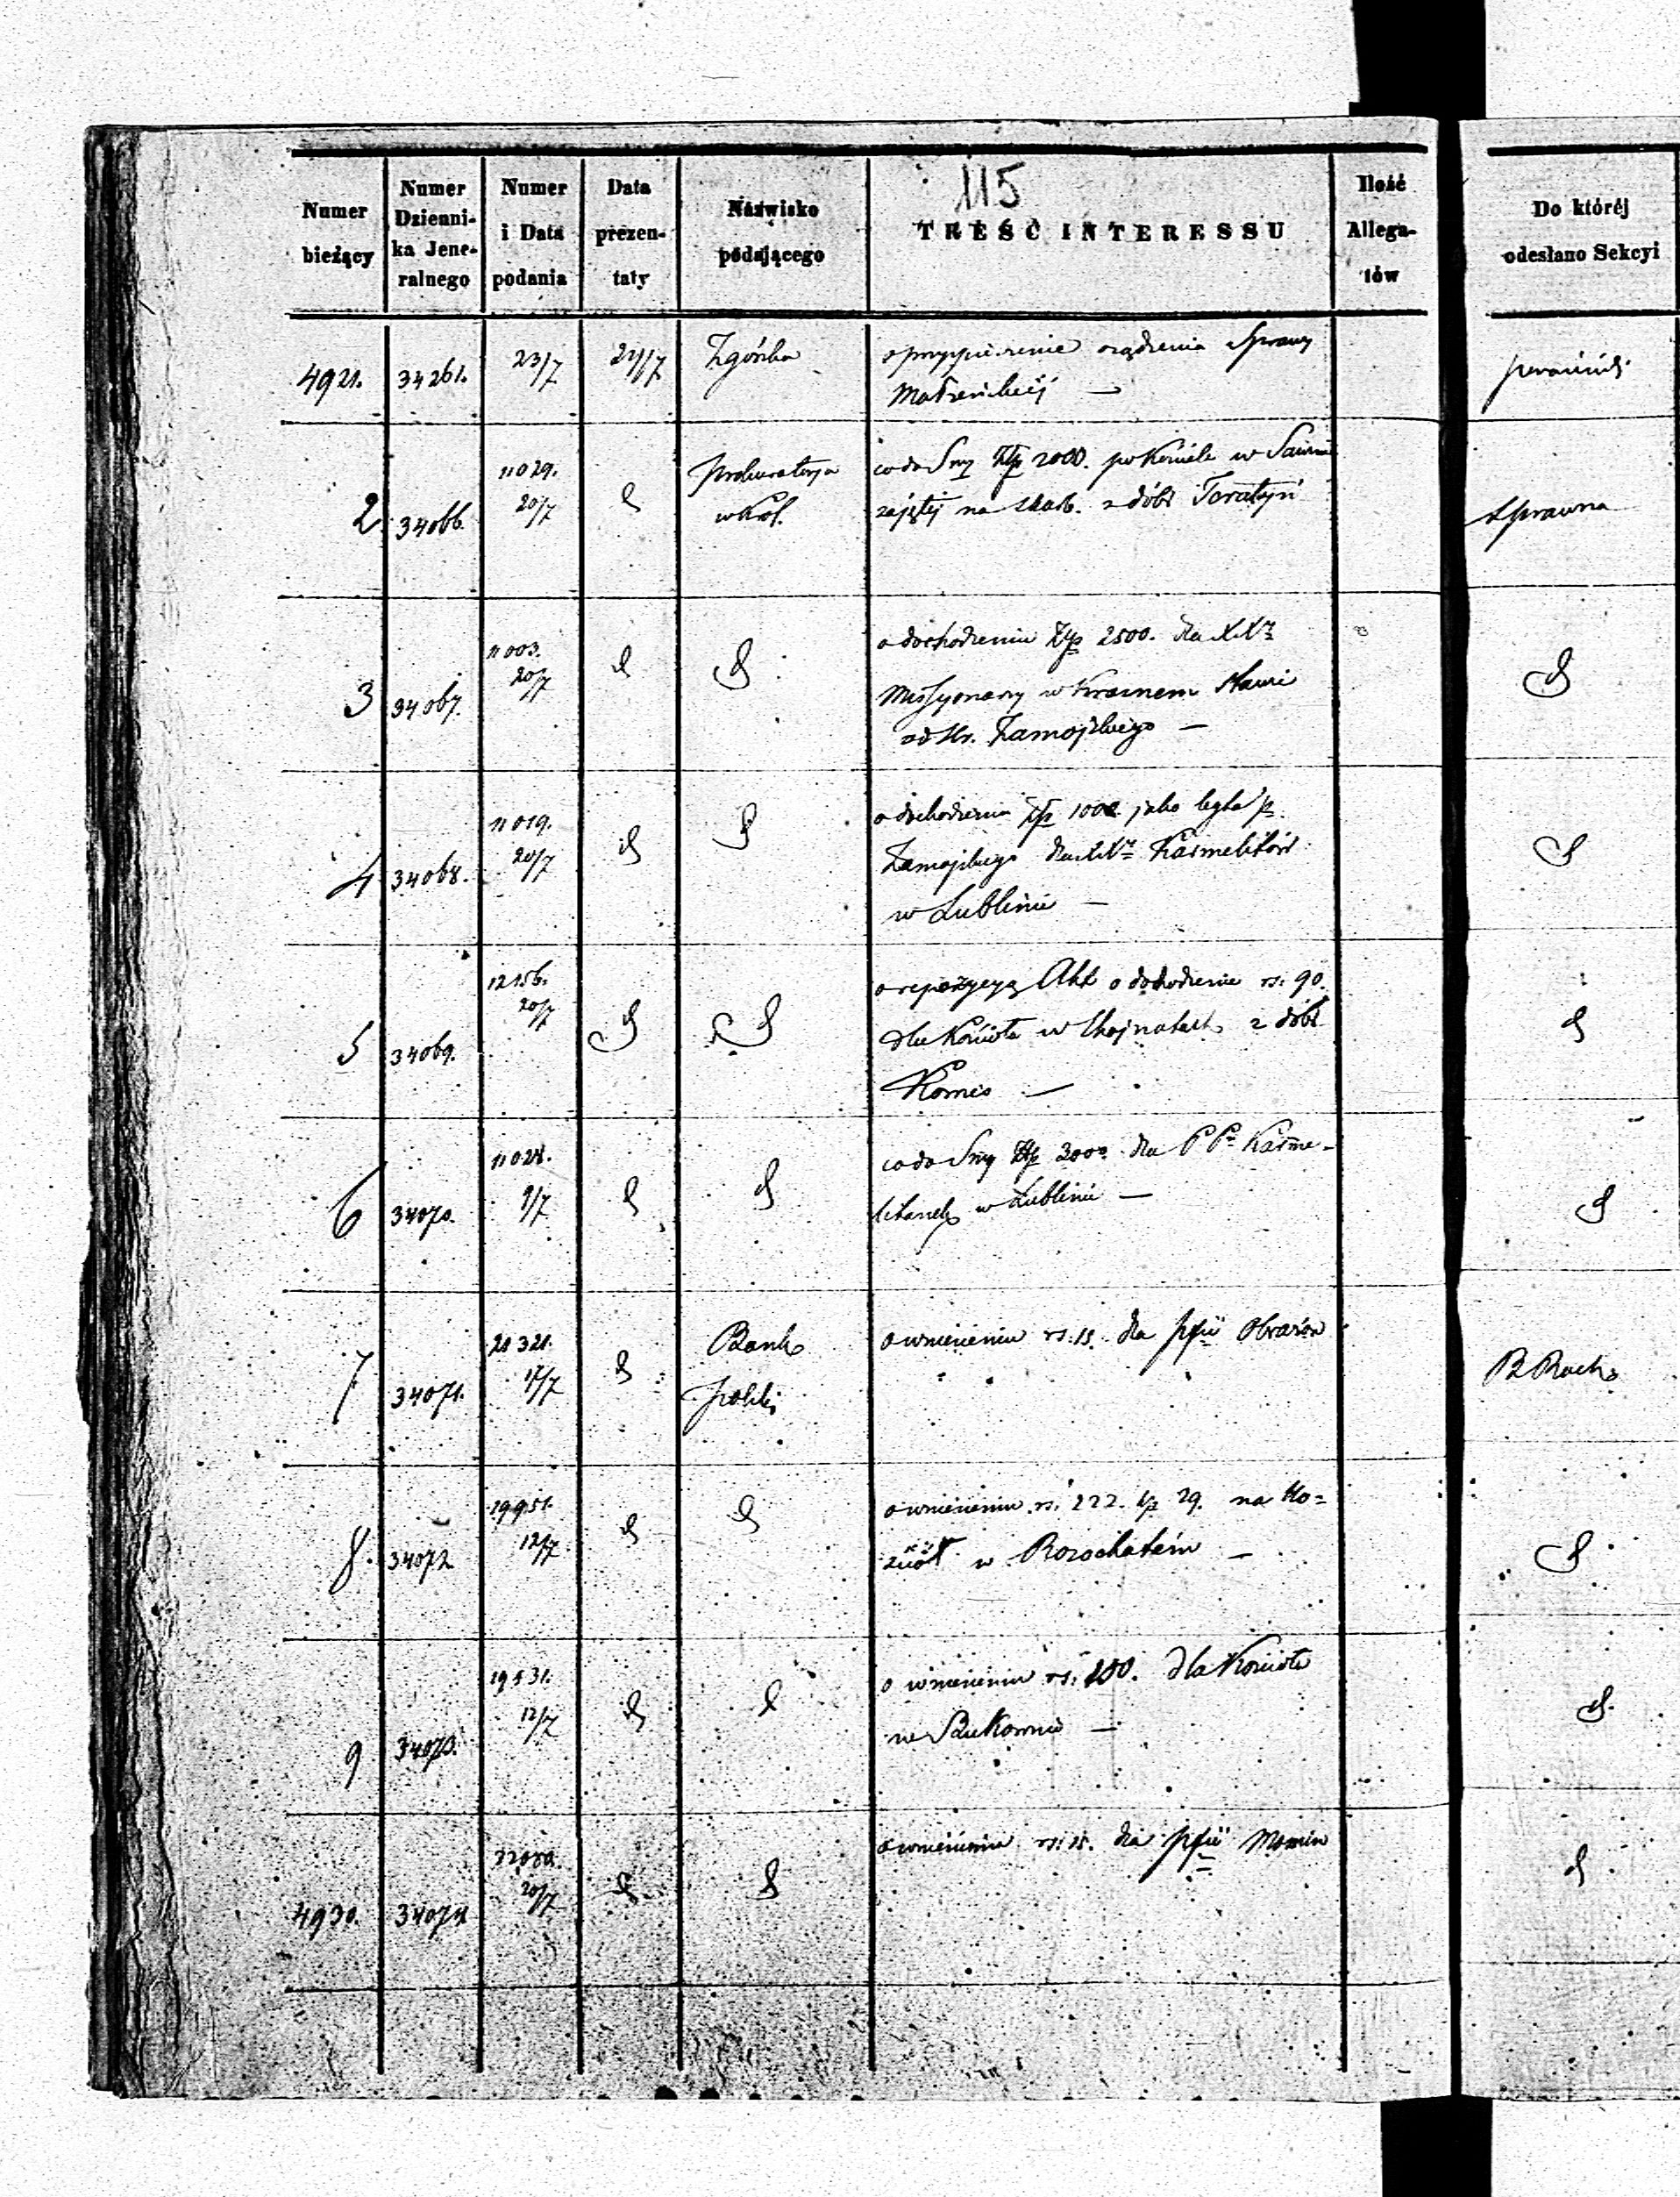 115
Numer bieżący
Numer Dzienni-ka Jene-ralnego
Numer i Data podania
Data prezen-taty
Nazwisko podającego
TREŚĆ INTERESSU
Ilość Allega-tów
Do któréj odesłano Sekcyi
4921. 34261. 23/7 Zgórska
o przyspieszenie osądzenia Sprawy
Małżeńskiéj —
2 34066. 11029. 20/7 Prokuratorja w Król. Sprawna
co do Smy Złp 2000. po Kościele w
zajętéj na skarb. z dóbr Teratyń
3 34067. 11003. 20/7
o dochodzeniu Złp 2500. dla XX
Missyonarzy w Krasnem Stawie
od Hr. Zamojskiego —
4 34068. 11019. 20/7
o dochodzeniu Złp 1000 jako legta p.
Zamojskiego dla XX Karmelitów
w Lublinie —
5 34069. 12156. 20/7
o repozycyą Akt o dochodzenie rs. 90.
dla Kościoła w Chojnatach z dóbr
6 34070. 11028. 9/7
co do Smy Złp 3000 dla PP Karme-
litanek w Lublinie —
7 34071. 21321. 17/7 Bank Polski B Rach
o wniesieniu rs. 15. dla pfii Obrazów
8. 34072 19951. 12/7
o wniesieniu rs. 222. kp 29. na Ko=
ściół w Rozochatém —
9 34073. 12/7
o wniesieniu rs. 150. dla Kościoła
w —
4930. 34074 20/7
o wniesieniu rs. 15. dla pfii